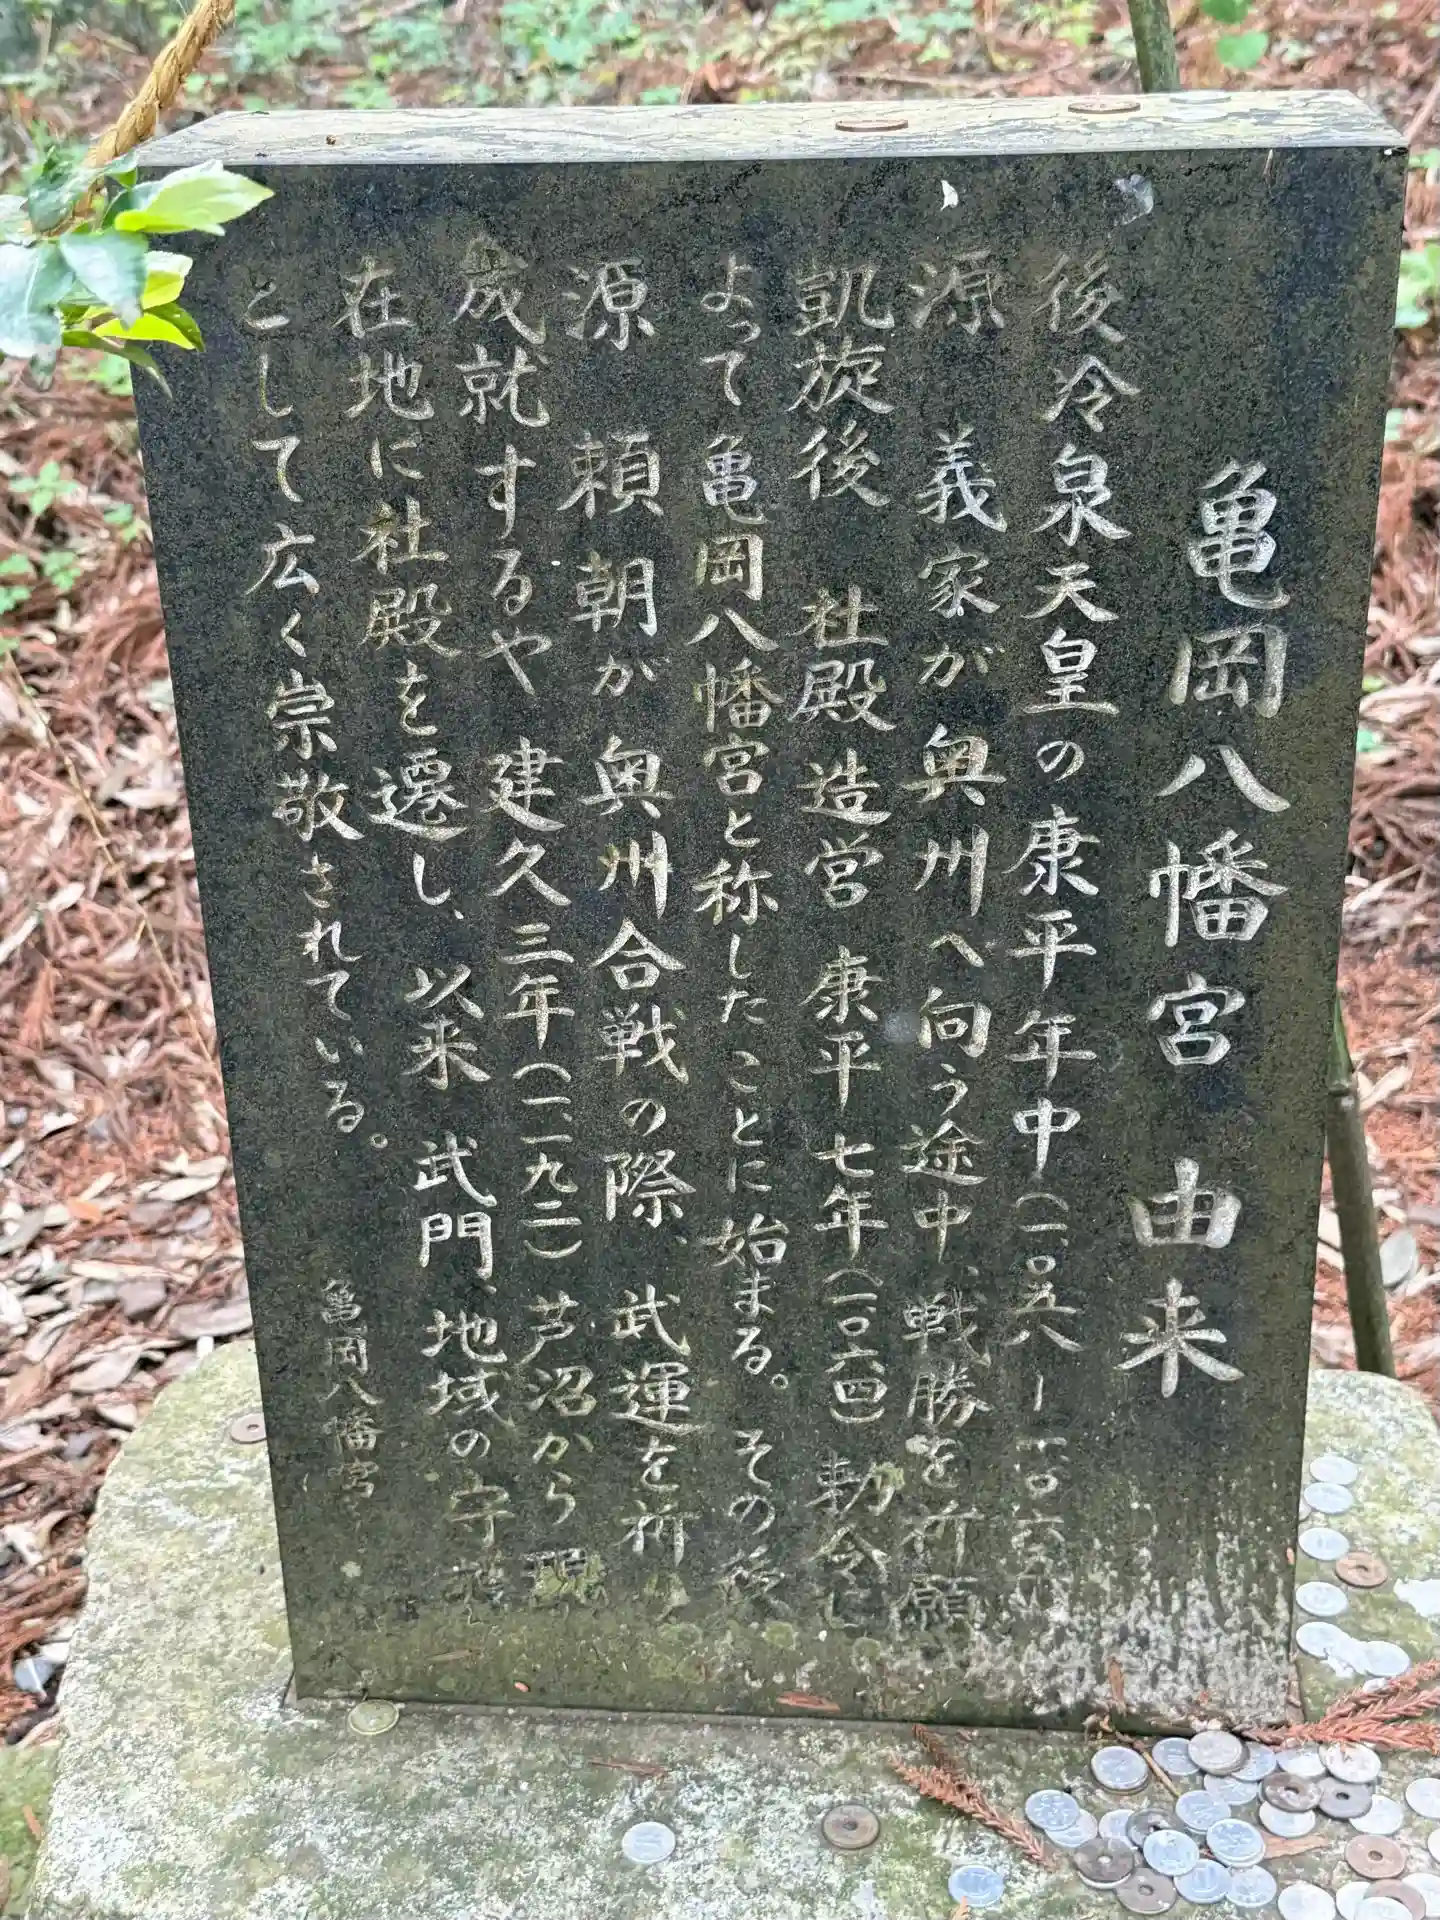 亀岡八幡宮 由来
後冷泉天皇の康平年中(一〇五八ー一〇六
源 義家が奥州へ向う途中、戦勝を祈願
凱旋後 社殿造営 康平七年(一〇六四)勅令に
よって亀岡八幡宮と称したことに始まる。その後
源 頼朝が奥州合戦の際、武運を祈り
成就するや 建久三年(一一九二)芦沼から 現
在地に社殿を遷し、以来 武門、地域の守護
として広く宗敬されている。
亀岡八幡宮